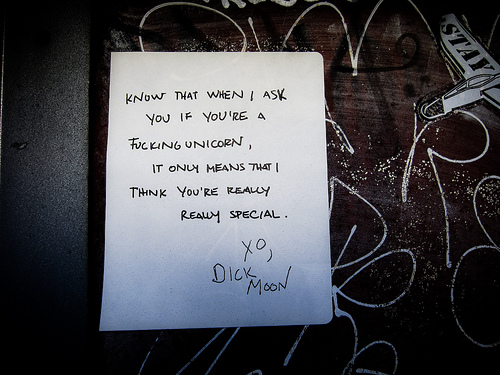 KNOW THAT WHEN I ASK
YOU IF YOU'RE A
FUCKING UNICORN,
IT ONLY MEANS THAT I
THINK YOU'RE REALLY
REALLY SPECIAL.
XO,
DICK
MOON
STAY